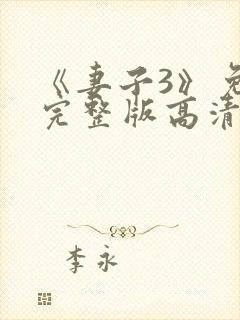 《妻子3》免
完整版高清
李永